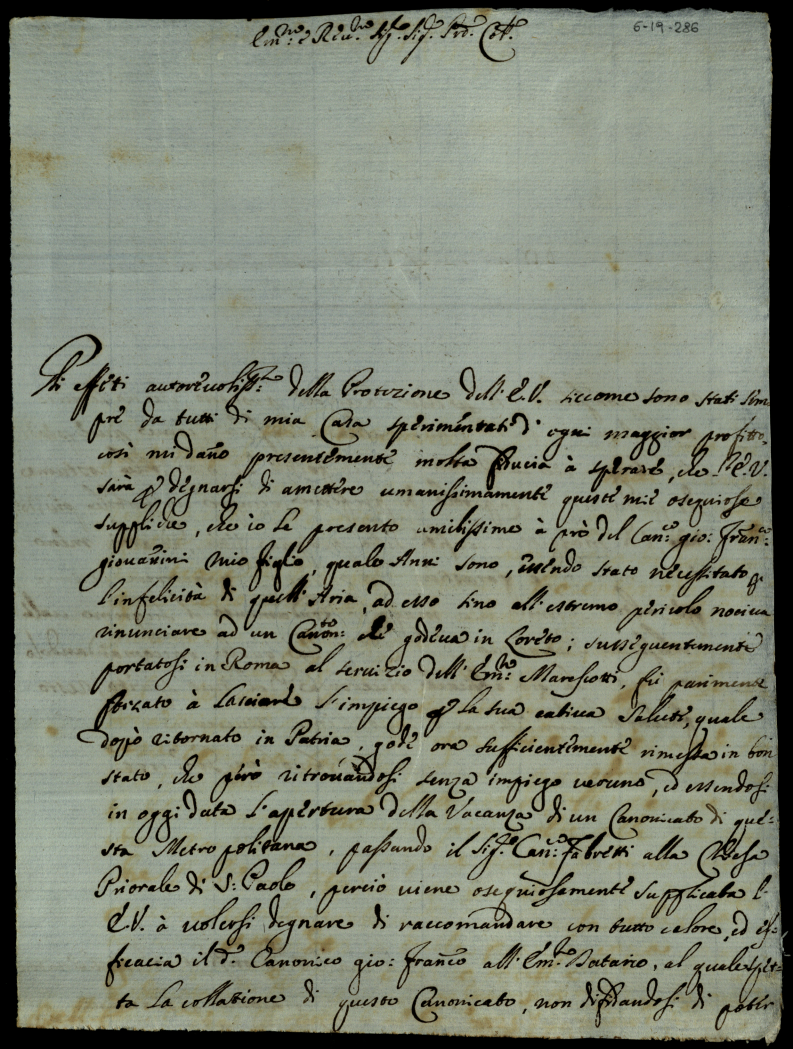 6-19-286
Em:mo e Rev:mo Sig.r Sig.r Pro.n Col.mo
Gli effetti autorevoliss:mi della Protezione dell'E.V. siccome sono stati sem
pre da tutti di mia Casa sperimentati d'ogni maggior profitto,
così mi dano presentemente molta fiducia à sperare, che l'E.V.
sarà p degnarsi di amettere umanissimamente queste mie osequiose
suppliche, che io le presento umilissime à prò del Can:co gio: Fran:co
giovanini mio figlio, quale Anni sono, essendo stato necessitato p
l'infelicità di quell'Aria, ad esso sino all'estremo pericolo nociva
rinunciare ad un Canon:to che godeva in Loreto; susseguentemente
portatosi in Roma al servizio dell'Em:mo Marescotti, fù parimente
forzato à lasciare l'impiego p la sua cativa salute, quale
dopò ritornato in Patria, gode ora sufficientemente rimessa in bon
stato, che però ritrovandosi senza impiego veruno, ed essendosi
in oggi data l'apertura della Vacanza di un Canonicato di que-
sta Metropolitana, passando il Sig.r Can:co Fabretti alla Chiesa
Priorale di S: Paolo, perciò viene osequiosamente supplicata l'
E.V. à volersi degnare di raccomandare con tutto calore, ed ef-
ficacia il d.o Canonico gio: Franco all'Em:mo Datario, al quale spet-
ta la collatione di questo Canonicato, non difidandosi di poter